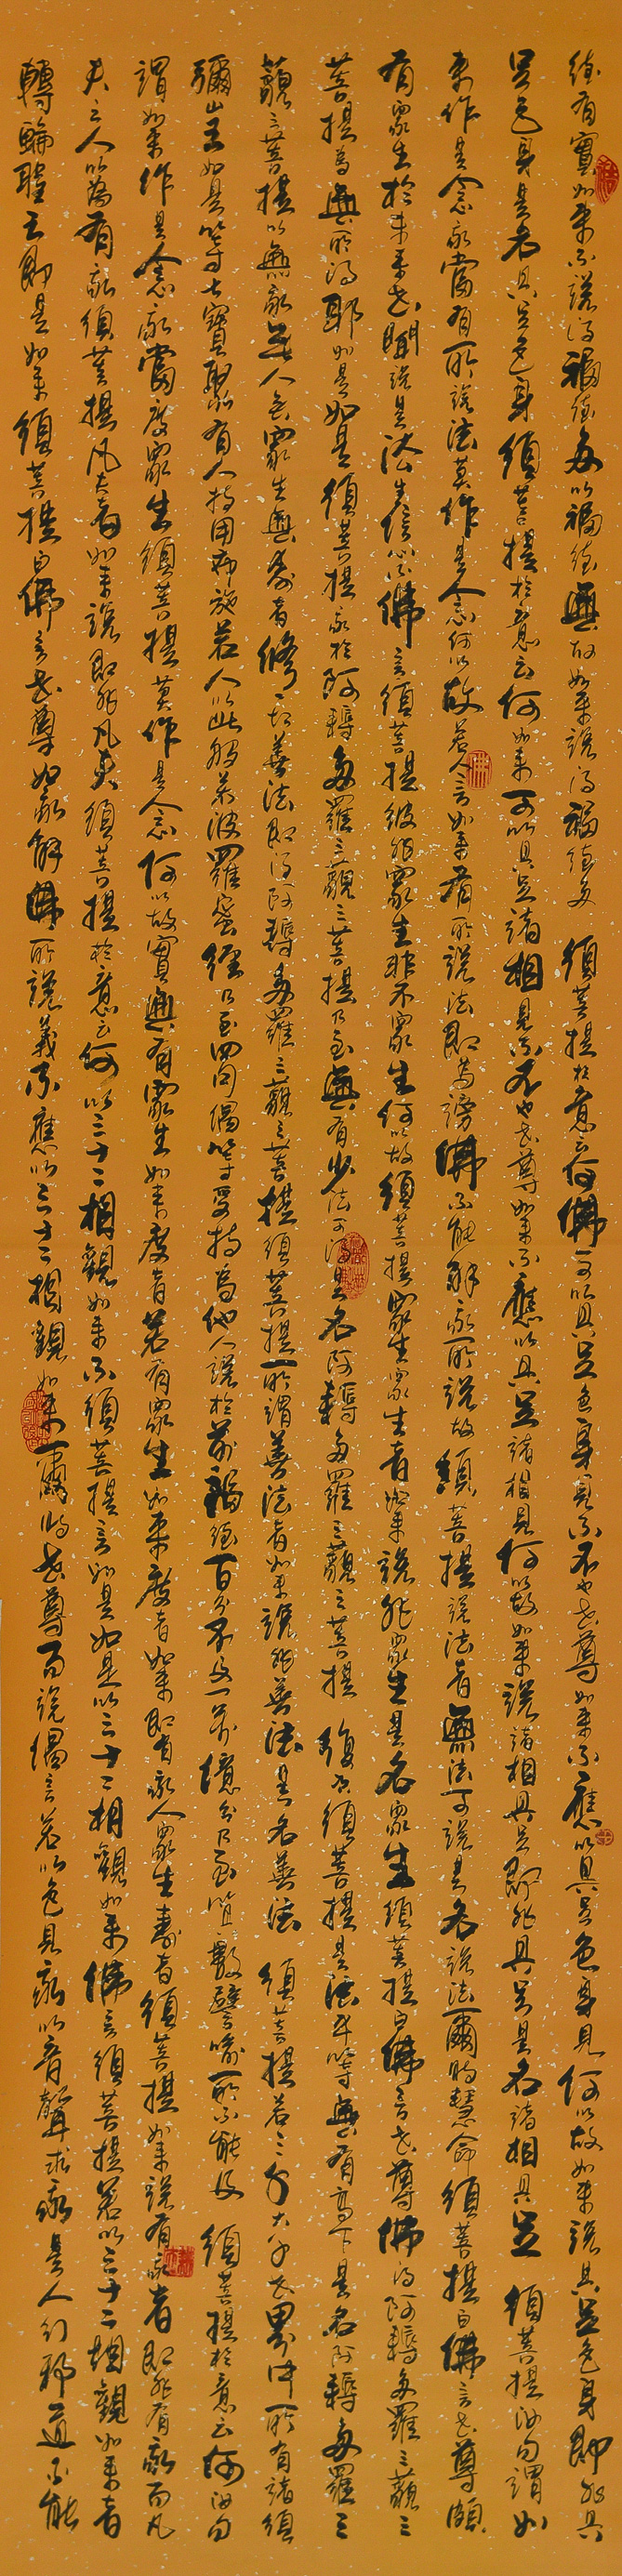 德有實如來不說得福德多以福德無故如來說得福德多 須菩提於意云何佛可以具足色身見不不也世尊如來不應以具足色身見何以故如來說具足色身即非具
足色身是名具足色身須菩提於意云何如來可以具足諸相見不不也世尊如來不應以具足諸相見何以故如來說諸相具足即非具足是名諸相具足 須菩提汝勿謂如
來作是念我當有所說法莫作是念何以故若人言如來有所說法即為謗佛不能解我所說故須菩提說法者無法可說是名說法爾時慧命須菩提白佛言世尊頗
有眾生於未來世聞說是法生信心不佛言須菩提彼非眾生非不眾生何以故須菩提眾生眾生者如來說非眾生是名眾生須菩提白佛言世尊佛得阿耨多羅三藐三
菩提為無所得耶如是如是須菩提我於阿耨多羅三藐三菩提乃至無有少法可得是名阿耨多羅三藐三菩提 復次須菩提是法平等無有高下是名阿耨多羅三
藐三菩提以無我無人無眾生無壽者修一切善法即得阿耨多羅三藐三菩提須菩提所謂善法者如來說非善法是名善法 須菩提若三千大千世界中所有諸須
彌山王如是等七寶聚有人持用布施若人以此般若波羅蜜經乃至四句偈等受持為他人說於前福德百分不及一萬億分乃至算數譬喻所不能及 須菩提於意云何汝勿
謂如來作是念我當度眾生須菩提莫作是念何以故實無有眾生如來度者若有眾生如來度者如來即有我人眾生壽者須菩提如來說有我者即非有我而凡
夫之人以為有我須菩提凡夫者如來說即非凡夫須菩提於意云何以三十二相觀如來不須菩提言如是如是以三十二相觀如來佛言須菩提若以三十二相觀如來者
轉輪聖王即是如來須菩提白佛言世尊如我解佛所說義不應以三十二相觀如來爾時世尊而說偈言若以色見我以音聲求我是人行邪道不能